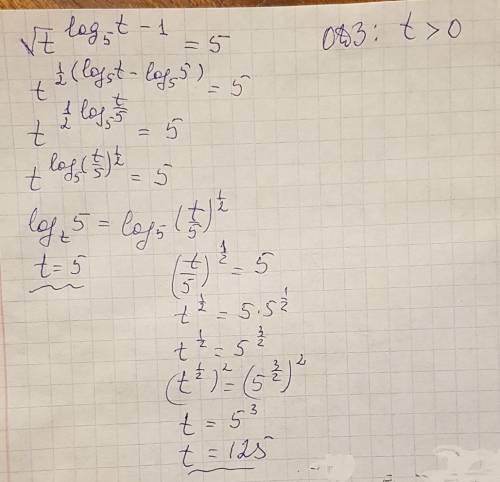 √t^(log₅t − 1) = 5 ОДЗ: t > 0
t^(½(log₅t − log₅5)) = 5
t^(½ log₅ t/5) = 5
t^(log₅(t/5)^½) = 5
log_t 5 = log₅ (t/5)^½
t = 5 (t/5)^½ = 5
t^½ = 5·5^½
t^½ = 5^(3/2)
(t^½)² = (5^(3/2))²
t = 5³
t = 125